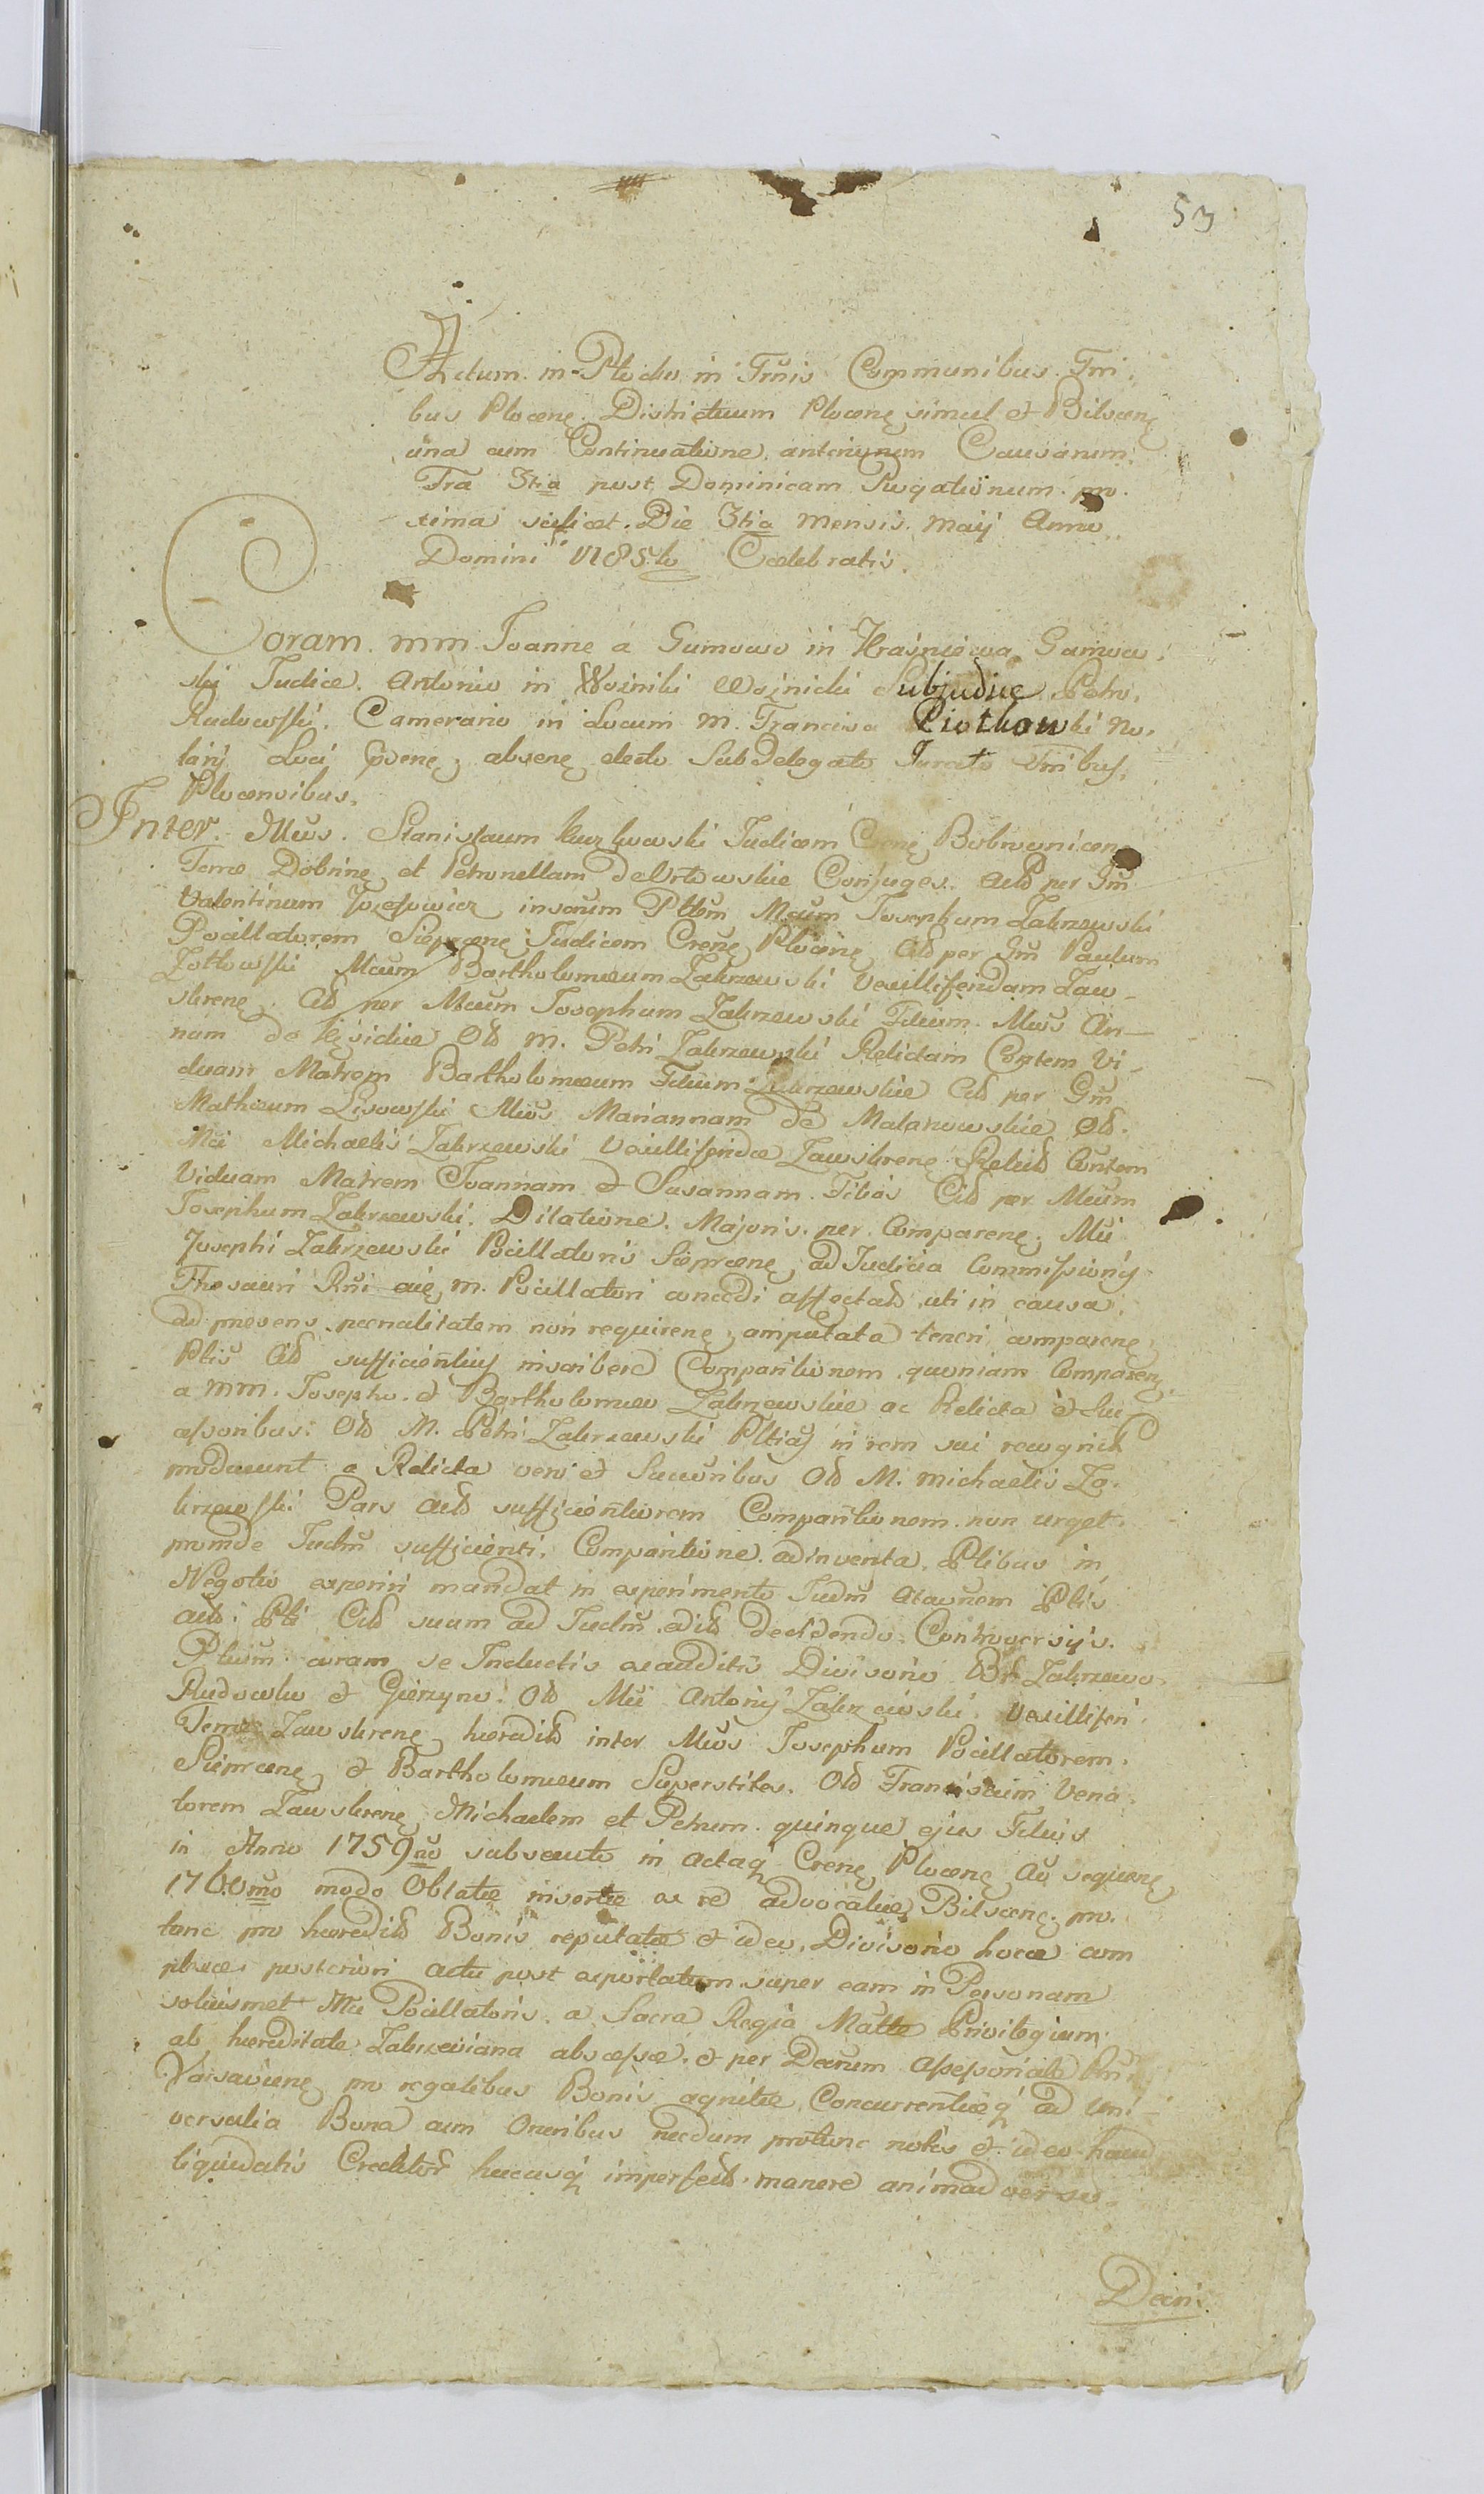 53
Actum in Plocko in Trnis Communibus Trri
bus Plocenę Districtuum Plocenę simul et Bilscenę
una cum Continuatione anteriorum Causarum
Fra 3tia post Dominicam Rogationum pro
xima scilicet Die 3tia mensis maij Anno
Domini 1785to Celebratis.
Coram mm Joanne a Gumowo in Kraśniewo Gumow
ski Judice. Antonio in Woźniki Woźnicki Subjudice Petro
Rudowski. Camerario in Locum m. Francisci Piotkowski No
tarij Loci absenę electo Subdelegato Jurato Trribus
Plocensibus.
Inter Mcus. Stanislaum Judicem Crenę Bobrownicenę
Terrae Dobrinę et Petronellam de Conjuges. Actd per Gm
Valentinum Jozefowicz insorum Pttem Mcum Josephum Zakrzewski
Pocillatorem Sieprcenę Judicem Crenę Plocenę Citd per Gm Paulum
Zottowski Mcum Bartholomeum Zakrzewski Vexilliferidam Zaw
skrenę Citd per Mcum Josephum Zakrzewski Filium. Mcus An
nam de Old m. Petri Zakrzewski Relictam Contem Vi
duam Matrem Bartholomeum Filium Zakrzewskie Citd per Gm
Mathaeum Lisowski Mcus Mariannam de Malanowskie Old.
Mci Michaelis Zakrzewski Vexilliferidae Zawskrenę Relictd Contem
Viduam Matrem Joannam et Susannam Filias Citd per Mcum
Josephum Zakrzewski. Dilatione Majoris per Comparenę Mci
Josephi Zakrzewski Pocillatoris Sieprcenę ad Judicia Commissionis
Thesauri Rni m. Pocillatori concedi affectatd uti in causa
ad praesens paenalitatem non requirenę amputata teneri comparenę
Ptis Citd sufficientius inscribere Comparitionem quoniam Comparenę
a mm. Josepho et Bartholomeo Zakrzewskie ac Relicta et Suc
cessoribus Old M. Petri Zakrzewski in rem sui
producunt a Relicta vero et Successoribus Old M. Michaelis Za
krzewski Pars Actd sufficientiorem Comparitionem non urget
proinde Judm sufficienti Comparitione adinventa Ptibus in
Negotio experiri mandat in experimento Judm Ptis
Actd Pti Citd suum ad Judm editd decidendo Controversijs
Ptium coram se Inductis exauditis Divisorio Br Zakrzewo
Rudowko et Gierzyno Old Mci Antonij Zakrzewski Vexilliferi
Terrae Zawskrenę haereditd inter Mcus Josephum Pocillatorem
Sieprcenę et Bartholomeum Superstites. Old Franciscum Vena
torem Zawskrenę Michaelem et Petrum quinque ejus Filios
in Anno 1759no subsecuto in actaq Crenę Plocenę Ao sequenę
1760mo modo Oblatae insertae ac re advocatiae Bilscenę pro
tunc pro haereditd Bonis reputatae et ideo, Divisorio hocce cum
posteriori actu post exportatum super eam in Personam
soliusmet Mci Pocillatoris a Sacra Regia Matte Privilegium
ab haereditate Zakrzeviana abscessae et per Decrum Assessoriale
Varsavienę pro regalibus Bonis agnitae, Concurrentiaeq ad Uni
versalia Bona cum Oneribus necdum protunc notis et ideo haud
liquidatis Creditor hucusq imperfectd manere animadverso
Decri